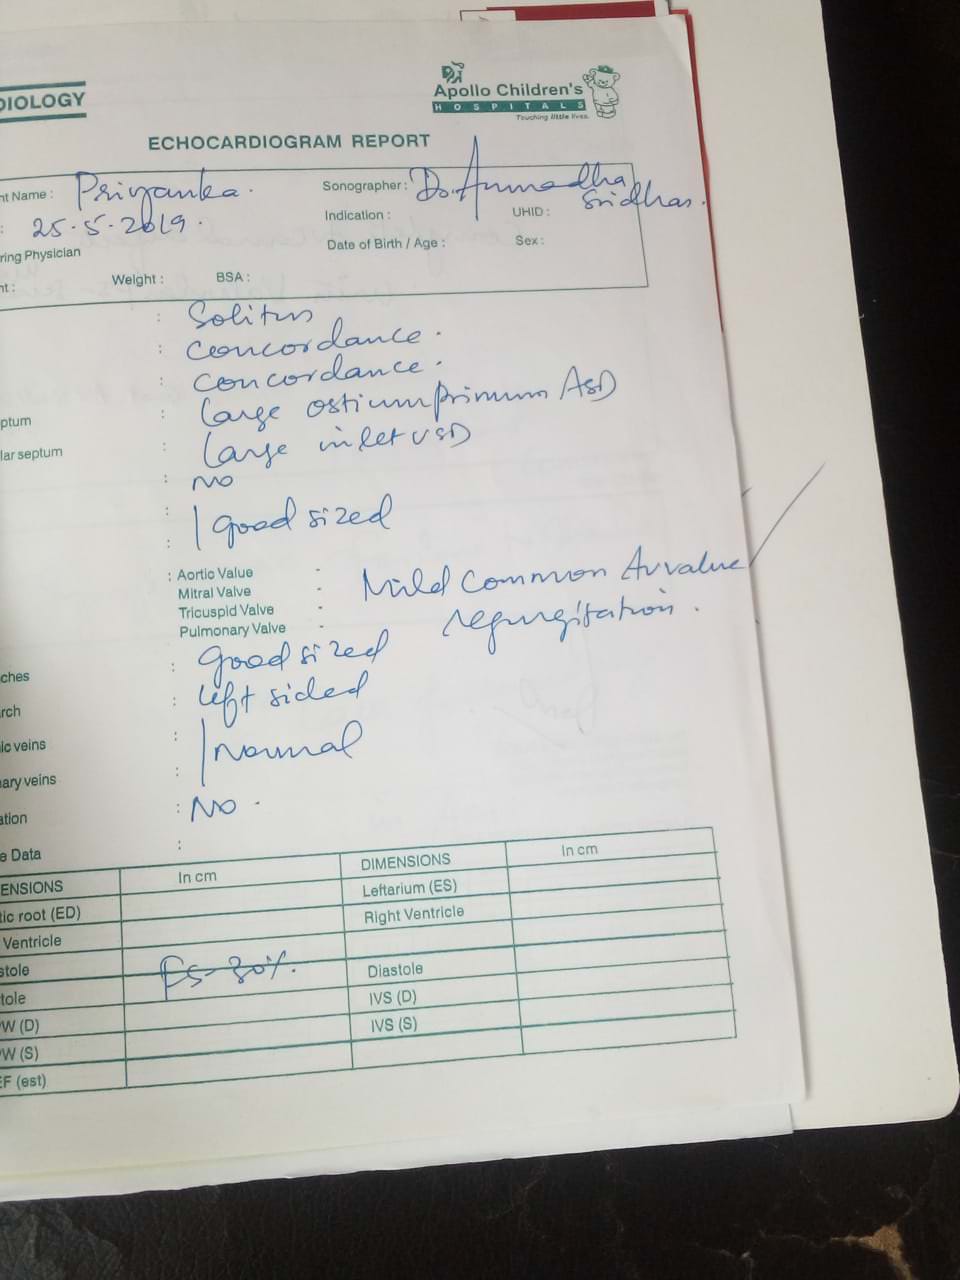 DIOLOGY
Apollo Children's
HOSPITALS
Touching little lives.
ECHOCARDIOGRAM REPORT
nt Name : Priyanka. Sonographer : Dr. Anuradha Sridhar.
: 25.5.2019. Indication : UHID :
ring Physician Date of Birth / Age : Sex :
nt : Weight : BSA :
: Solitus
: concordance.
: concordance.
ptum : Large ostium primum ASD
lar septum : Large inlet VSD
: NO
: good sized
:
: Aortic Value -
Mitral Valve - Mild Common Av valve
Tricuspid Valve - regurgitation.
Pulmonary Valve -
ches : good sized
rch : left sided
ic veins : Normal
ary veins :
ation : NO.
e Data :
ENSIONS In cm DIMENSIONS In cm
tic root (ED) Leftarium (ES)
Ventricle Right Ventricle
stole FS - 30%. Diastole
tole IVS (D)
W (D) IVS (S)
W (S)
EF (est)